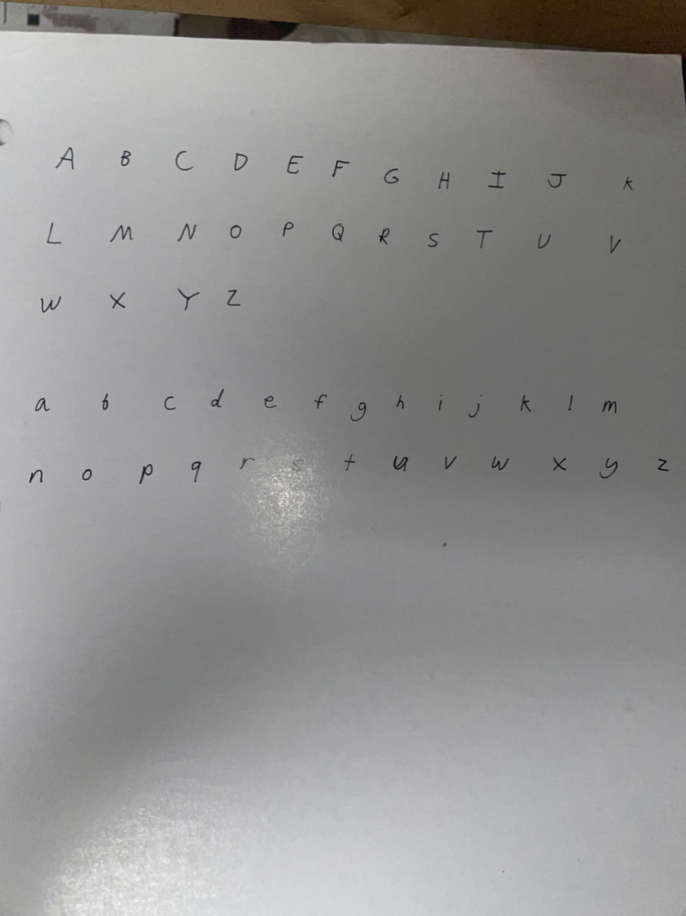 A B C D E F G H I J K
L M N O P Q R S T U V
W X Y Z
a b c d e f g h i j k l m
n o p q r s t u v w x y z